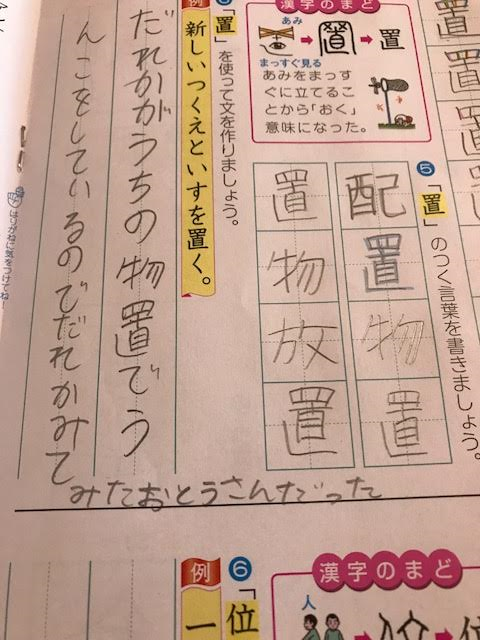 漢字のまど
あみ
置
まっすぐ見る
あみをまっす
ぐに立てるこ
とから「おく」
意味になった。
5
「置」のつく言葉を書きましょう。
配置
物置
置物
放置
「置」を使って文を作りましょう。
例
新しいつくえといすを置く。
だれかがうちの物置でう
んこをしているのでだれかみて
みたおとうさんだった
はりがねに気をつけてね!
漢字のまど
人
6
「位
例
一